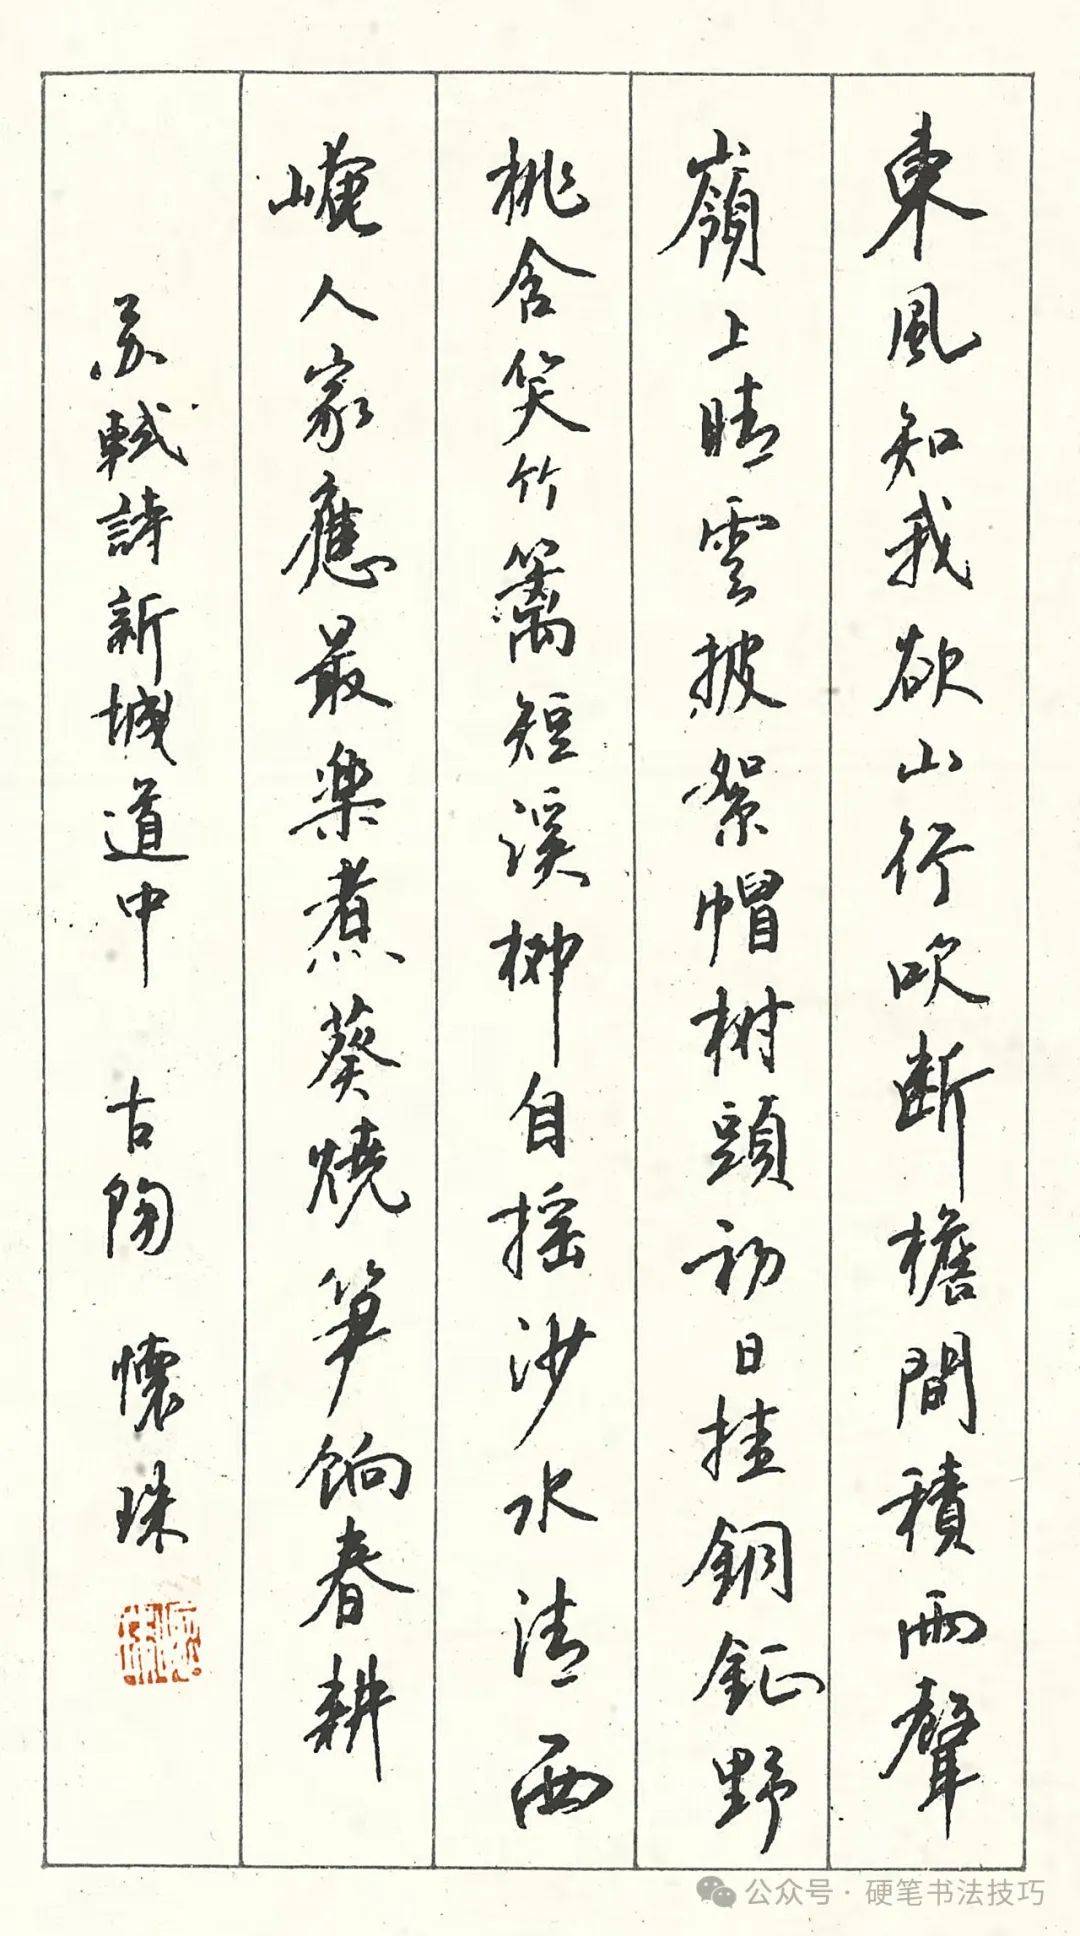 東風知我欲山行吹断檐間積雨聲
嶺上晴雲披絮帽树頭初日挂銅鉦野
桃含笑竹篱短溪柳自摇沙水清西
崦人家應最楽煮葵燒笋饷春耕
苏軾詩新城道中 古陶 懷珠
公众号·硬笔书法技巧